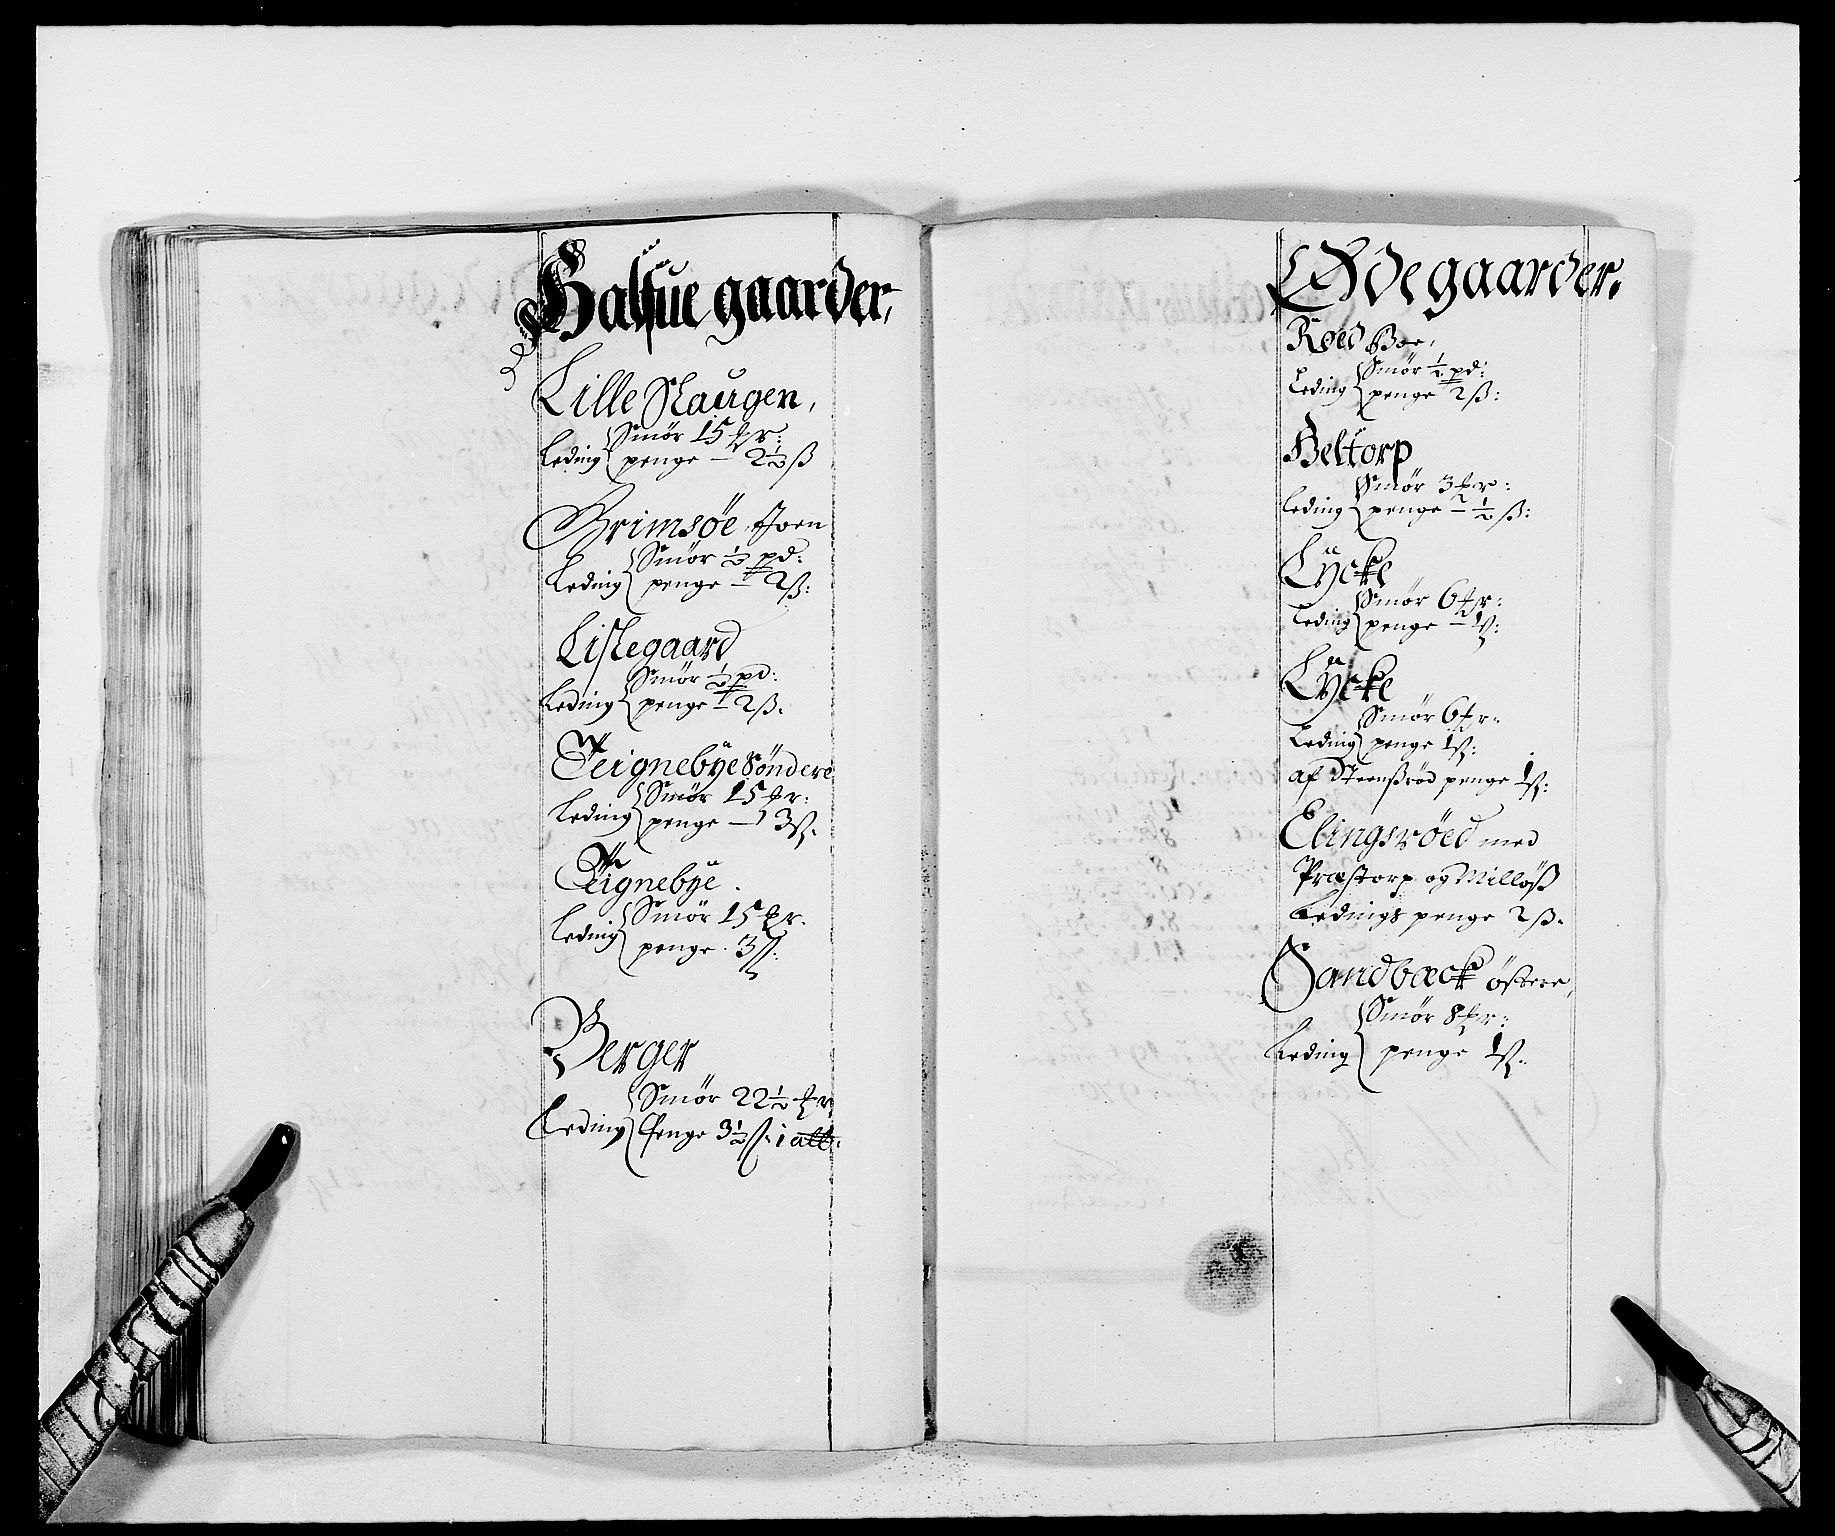 Halfue gaarder,
Lille Naugen,
Leding Smör 15 mr:
penge — 2½ ß
Grimsöe
Leding Smör ½ pd:
penge — 2 ß:
Lislegaard
Leding Smör ½ pd:
penge — 2 ß.
Teignebÿe Söndere
Leding Smör 15 mr:
penge — 3 ß.
Teignebÿe.
Leding Smör 15 mr.
penge. 3 ß:
Berger
Leding Smör 22½ mr
penge 3½ ß. 1 alb:
Ödegaarder.
Röed
Leding Smör ½ pd:
penge 2 ß:
Heltorp
Leding Smör 3 mr:
penge — ½ ß:
Lÿcke
Leding Smör 6 mr:
penge — 1 ß:
Lÿcke
Leding Smör 6 mr.
penge 1 ß:
af Steenßröd penge 1 ß:
Elingsröed med
Præstorp og Millöß
Ledings penge 2 ß.
Sandbæck östere,
Leding Smör 8 mr:
penge 1 ß.